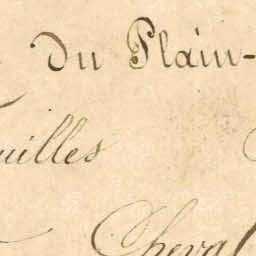 du Plain-
uilles
Cheval